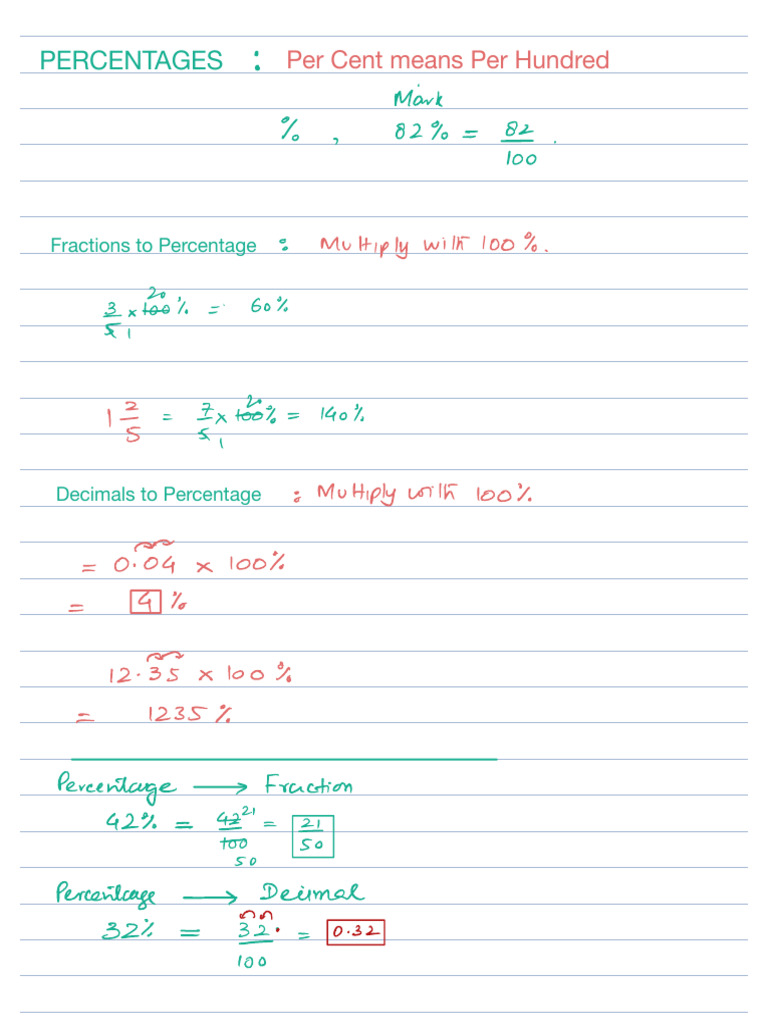 PERCENTAGES : Per Cent means Per Hundred
Mark
% , 82% = 82/100 .
Fractions to Percentage : Multiply with 100%.
3/5 1 × 100 20 % = 60%
1 2/5 = 7/5 1 × 100 20 % = 140%
Decimals to Percentage : Multiply with 100%
= 0.04 × 100%
= 4 %
12.35 × 100%
= 1235%
Percentage → Fraction
42% = 42 21/100 50 = 21/50
Percentage → Decimal
32% = 32./100 = 0.32